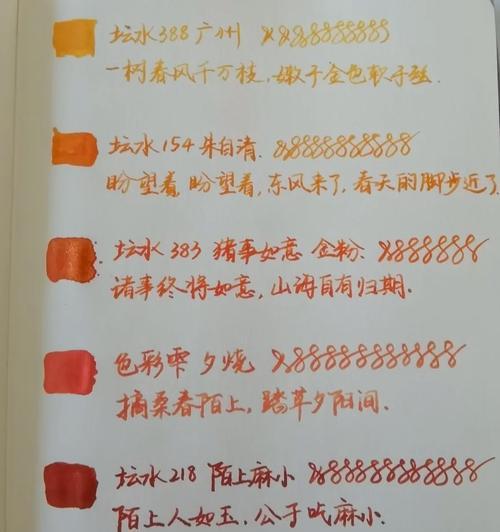 坛水388 广州
一树春风千万枝,嫩于金色软于丝.
坛水154 朱自清.
盼望着,盼望着,东风来了,春天的脚步近了
坛水383 猪事如意 金粉.
诸事终将如意,山海自有归期.
色彩雫 夕烧
摘桑春陌上,踏草夕阳间.
坛水218 陌上麻小
陌上人如玉,公子吃麻小.